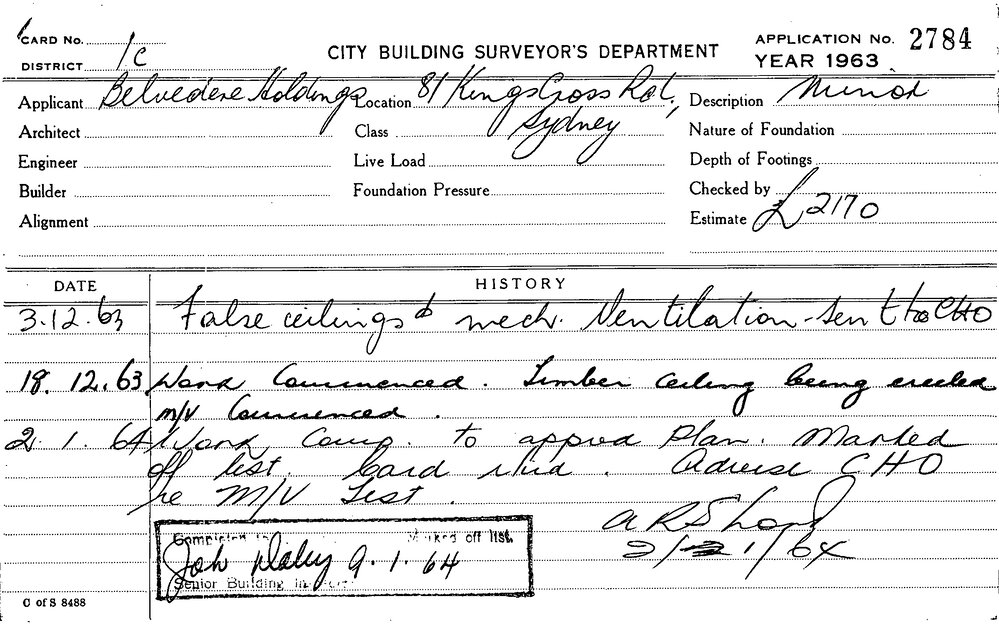 CARD No.
DISTRICT 1c
CITY BUILDING SURVEYOR'S DEPARTMENT
APPLICATION No. 2784
YEAR 1963
Applicant Belvedere Holdings
Location 81 Kings Cross Rd, Sydney
Description Minor
Architect
Class
Nature of Foundation
Engineer
Live Load
Depth of Footings
Builder
Foundation Pressure
Checked by
Alignment
Estimate £2170
DATE
HISTORY
3.12.63 False ceilings & mech. Ventilation - sent to CHO
18.12.63 Work Commenced. Timber ceiling being erected
m/v Commenced.
2.1.64 Work Comp. to approd plan. Marked
off list. Card Advise CHO
re M/V Test.
2/1/64
Completed Marked off list.
9.1.64
Senior Building
C of S 8488